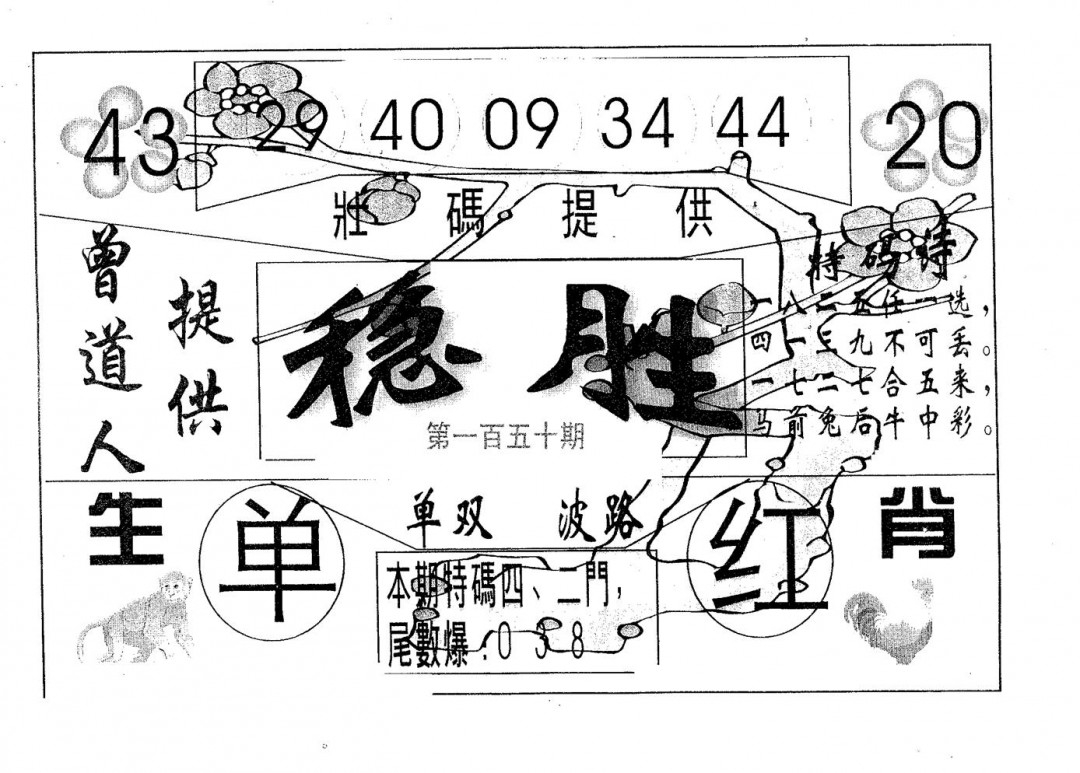 43 29 40 09 34 44 20
壯碼提供
曾道人
提供
稳胜
第一百五十期
特码诗
一八二五任一选，
四一三九不可丢。
一七二七合五来，
马前兔后牛中彩。
生肖
单
单双 波路
红
本期特碼四、二門，
尾數爆：038